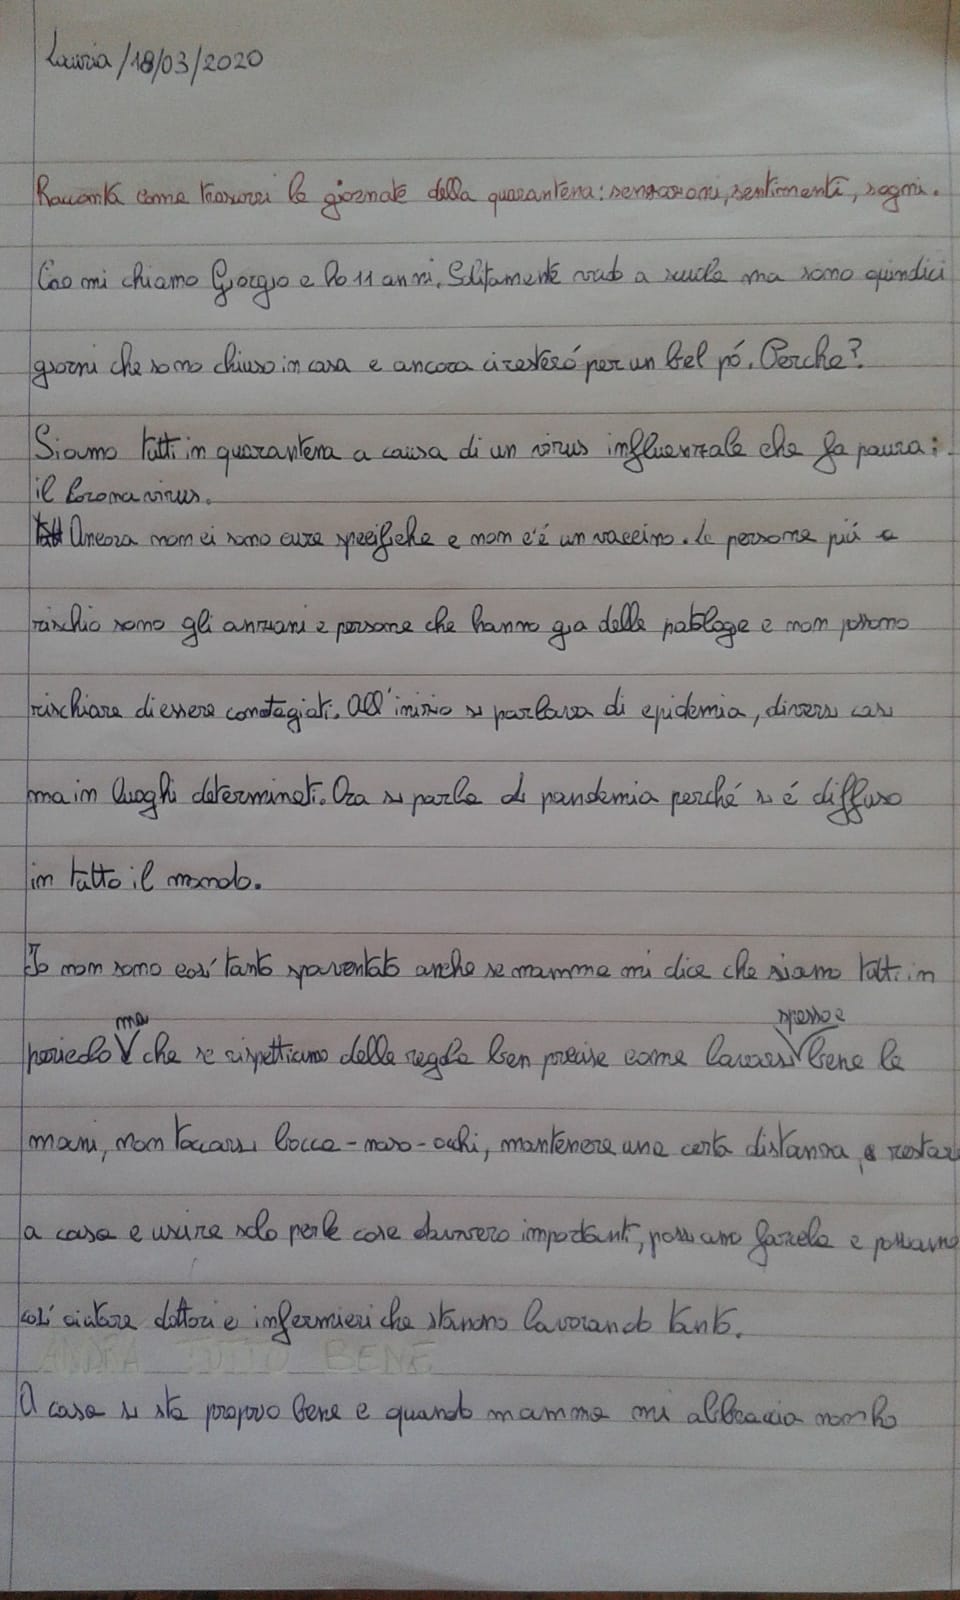 Lauria/18/03/2020
Racconta come trascorri le giornate della quarantena: sensazioni, sentimenti, sogni.
Ciao mi chiamo Giorgio e ho 11 anni. Solitamente vado a scuola ma sono quindici
giorni che sono chiuso in casa e ancora ci resteró per un bel pó. Perche?
Siamo tutti in quarantena a causa di un virus influenzale che fa paura:
il Coronavirus.
Ancora non ci sono cure specifiche e non c'é un vaccino. Le persone piú a
rischio sono gli anziani e persone che hanno gia delle patologe e non possono
rischiare di essere conotagiati. All'inizio si parlava di epidemia, diversi casi
ma in luoghi determinati. Ora si parla di pandemia perché si é diffuso
in tutto il mondo.
Io non sono cosí tanto spaventato anche se mamma mi dice che siamo tutti in
periodo ma che se rispettiamo delle regole ben precise come lavarsi spesso e bene le
mani, non toccarsi bocca-naso-occhi, mantenere una certa distanza, restare
a casa e uscire solo per le cose davvero importanti, possiamo farcela e possiamo
cosí aiutare dottori e infermieri che stanno lavorando tanto.
ANDRÀ TUTTO BENE
A casa si sta proprio bene e quando mamma mi abbraccia non ho